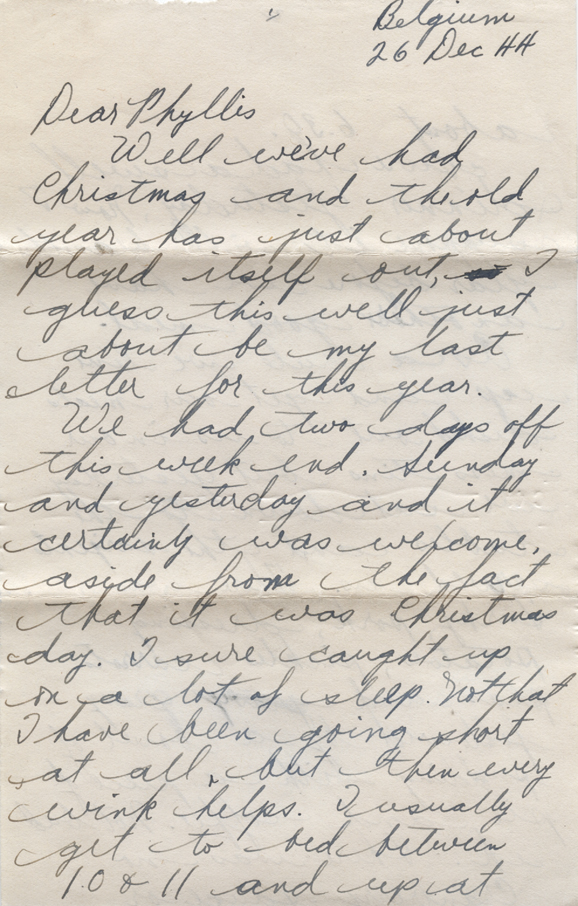 Belgium
26 Dec 44
Dear Phyllis
Well we've had
Christmas and the old
year has just about
played itself out, I
guess this well just
about be my last
letter for this year.
We had two days off
this week end. Sunday
and yesterday and it
certainly was welcome,
aside from the fact
that it was Christmas
day. I sure caught up
on a lot of sleep. Not that
I have been going short
at all, but then every
wink helps. I usually
get to bed between
10 & 11 and up at